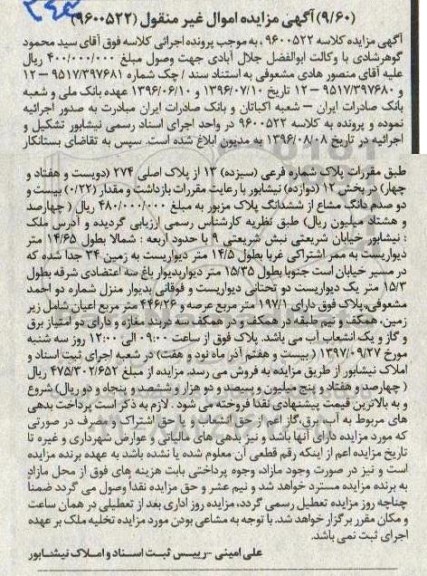 (۹/۶۰) آگهی مزایده اموال غیر منقول (۹۶۰۰۵۲۲)
آگهی مزایده کلاسه ۹۶۰۰۵۲۲ ، به موجب پرونده اجرائی کلاسه فوق آقای سید محمود
گوهرشادی با وکالت ابوالفضل جلال آبادی جهت وصول مبلغ ۴۰۰/۰۰۰/۰۰۰ ریال
علیه آقای منصور هادی مشعوفی به استناد سند / چک شماره ۹۵۱۷/۳۹۷۶۸۱ – ۱۲
و ۹۵۱۷/۳۹۷۶۸۰ – ۱۲ تاریخ ۱۳۹۶/۰۷/۱۰ و ۱۳۹۶/۰۶/۱۰ عهده بانک ملی و شعبه
بانک صادرات ایران – شعبه اکباتان و بانک صادرات ایران مبادرت به صدور اجرائیه
نموده و پرونده به کلاسه ۹۶۰۰۵۲۲ در واحد اجرای اسناد رسمی نیشابور تشکیل و
اجرائیه در تاریخ ۱۳۹۶/۰۸/۰۸ به مدیون ابلاغ شده است. سپس به تقاضای بستانکار
طبق مقررات پلاک شماره فرعی (سیزده) ۱۳ از پلاک اصلی ۲۷۴ (دویست و هفتاد و
چهار) در بخش ۱۲ (دوازده) نیشابور با رعایت مقررات بازداشت و مقدار (۰/۲۲) بیست و
دو صدم دانگ مشاع از ششدانگ پلاک مزبور به مبلغ ۴۸۰/۰۰۰/۰۰۰ ریال ( چهارصد
و هشتاد میلیون ریال) طبق نظریه کارشناس رسمی ارزیابی گردیده و آدرس ملک
: نیشابور خیابان شریعتی نبش شریعتی ۹ با حدود اربعه : شمالا بطول ۱۴/۶۵ متر
دیواریست به ممر اشتراکی غربا بطول ۱۴/۵ متر دیواریست به زمین ۳۴ جدا شده که
در مسیر خیابان است جنوبا بطول ۱۵/۳۵ متر دیواربدیوار باغ سه اعتضادی شرقه بطول
۱۵/۳ متر یک دیواریست دو تحتانی دیواریست و فوقانی بدیوار منزل شماره دو احمد
مشعوفی، پلاک فوق دارای ۱۹۷/۱ متر مربع عرصه و ۴۴۶/۲۶ متر مربع اعیان شامل زیر
زمین، همکف و نیم طبقه در همکف و در همکف سه دربند مغازه و دارای دو امتیاز برق
و گاز و یک انشعاب آب می باشد. پلاک فوق از ساعت ۰۹:۰۰ الی ۱۲:۰۰ روز سه شنبه
مورخ ۱۳۹۷/۰۹/۲۷ ( بیست و هفتم آذر ماه نود و هفت) در شعبه اجرای ثبت اسناد و
املاک نیشابور از طریق مزایده به فروش می رسد. مزایده از مبلغ ۴۷۵/۳۰۲/۶۵۲ ریال
( چهارصد و هفتاد و پنج میلیون و سیصد و دو هزار و ششصد و پنجاه و دو ریال) شروع
و به بالاترین قیمت پیشنهادی نقدا فروخته می شود . لازم به ذکر است پرداخت بدهی
های مربوط به آب ، برق،گاز اعم از حق انشعاب و یا حق اشتراک و مصرف در صورتی
که مورد مزایده دارای آنها باشد و نیز بدهی های مالیاتی و عوارض شهرداری و غیره تا
تاریخ مزایده اعم از اینکه رقم قطعی آن معلوم شده یا نشده باشد به عهده برنده مزایده
است و نیز در صورت وجود مازاد، وجوه پرداختی بابت هزینه های فوق از محل مازاد
به برنده مزایده مسترد خواهد شد و نیم عشر و حق مزایده نقدا وصول می گردد ضمنا
چناچه روز مزایده تعطیل رسمی گردد، مزایده روز اداری بعد از تعطیلی در همان ساعت
و مکان مقرر برگزار خواهد شد. با توجه به مشاعی بودن مورد مزایده تخلیه ملک بر عهده
اجرای ثبت نمی باشد.
علی امینی –رییس ثبت اسناد و املاک نیشابور